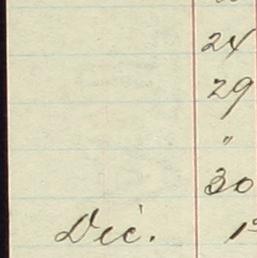 24
29
"
30
Dec. 1